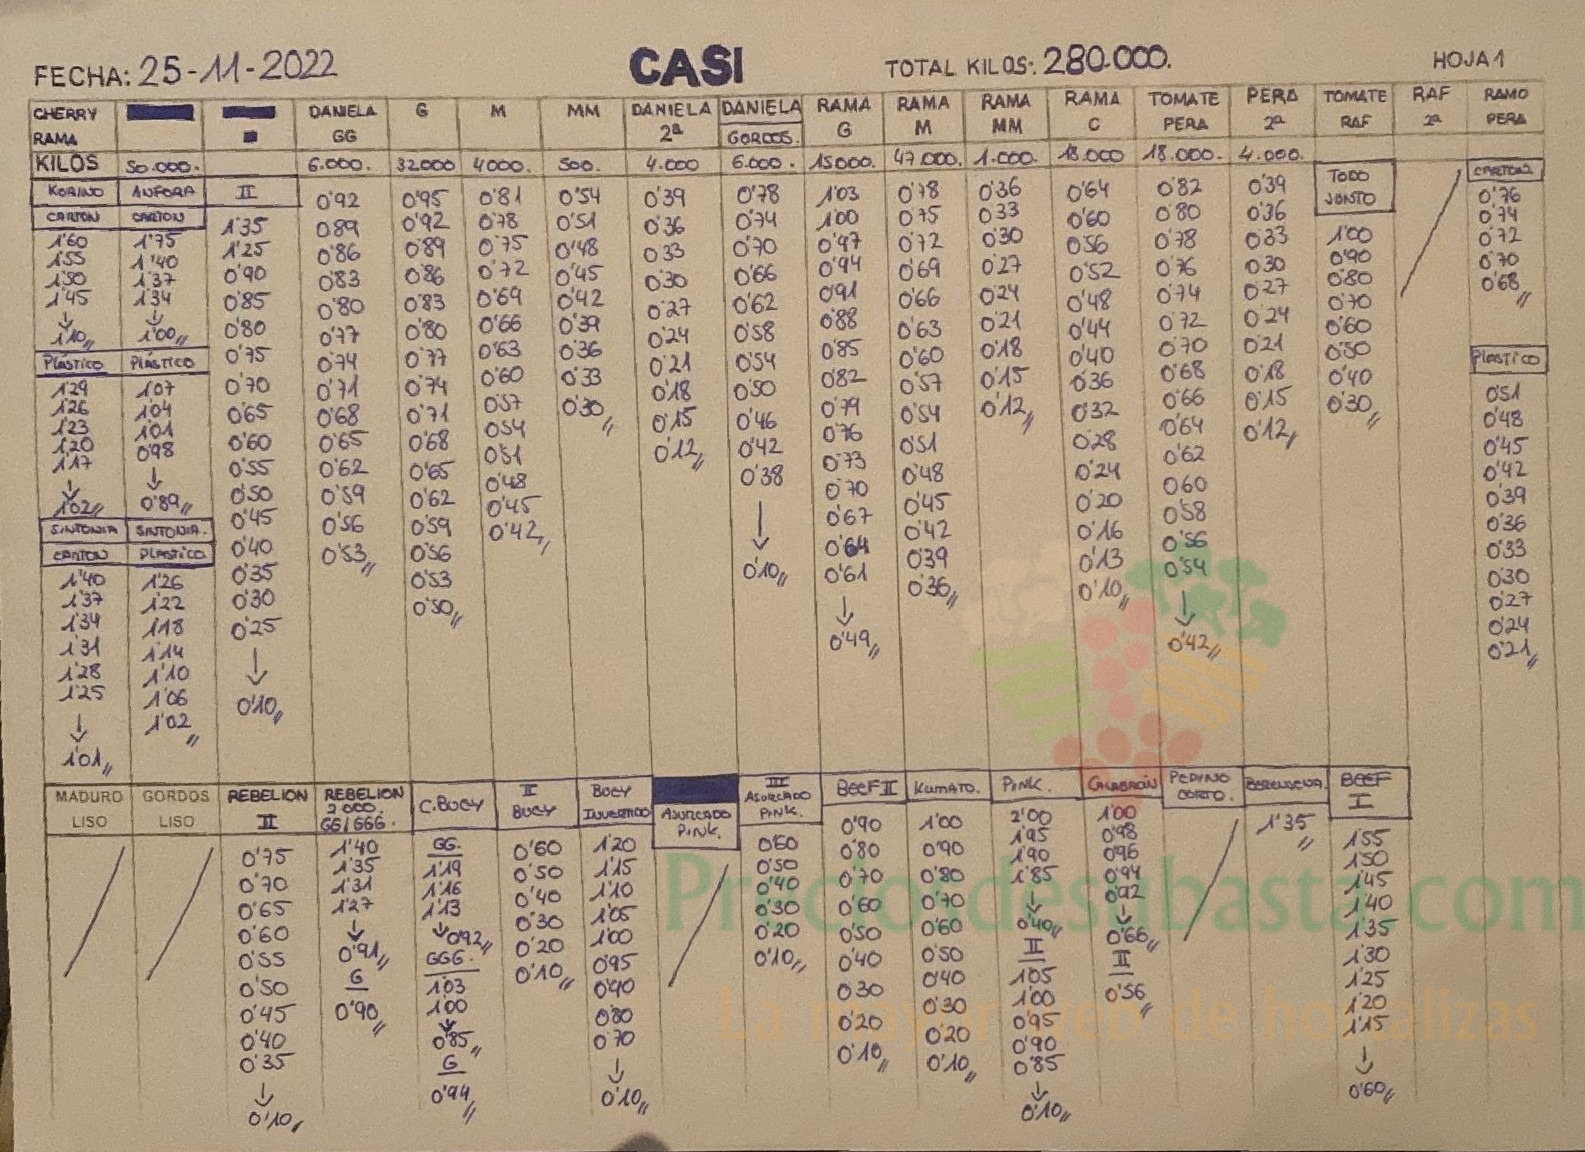 FECHA: 25-11-2022
CASI
TOTAL KILOS: 280.000.
HOJA 1
CHERRY RAMA
KILOS
50.000.
KORINO
CARTON
1'60
1'55
1'50
1'45
↓
1'10,,
PLÁSTICO
1'29
1'26
1'23
1'20
1'17
↓
1'02,,
SINTONIA
CARTON
1'40
1'37
1'34
1'31
1'28
1'25
↓
1'01,,
ANFORA
CARTON
1'75
1'40
1'37
1'34
↓
1'00,,
PLÁSTICO
1'07
1'04
1'01
0'98
↓
0'89,,
SINTONIA.
PLASTICO
1'26
1'22
1'18
1'14
1'10
1'06
1'02,,
II
1'35
1'25
0'90
0'85
0'80
0'75
0'70
0'65
0'60
0'55
0'50
0'45
0'40
0'35
0'30
0'25
↓
0'10,,
DANIELA
GG
6.000.
0'92
0'89
0'86
0'83
0'80
0'77
0'74
0'71
0'68
0'65
0'62
0'59
0'56
0'53,,
G
32000
0'95
0'92
0'89
0'86
0'83
0'80
0'77
0'74
0'71
0'68
0'65
0'62
0'59
0'56
0'53
0'50,,
M
4000.
0'81
0'78
0'75
0'72
0'69
0'66
0'63
0'60
0'57
0'54
0'51
0'48
0'45
0'42,,
MM
500.
0'54
0'51
0'48
0'45
0'42
0'39
0'36
0'33
0'30,,
DANIELA
2ª
4.000
0'39
0'36
0'33
0'30
0'27
0'24
0'21
0'18
0'15
0'12,,
DANIELA
GORDOS.
6.000.
0'78
0'74
0'70
0'66
0'62
0'58
0'54
0'50
0'46
0'42
0'38
↓
0'10,,
RAMA
G
15000.
1'03
1'00
0'97
0'94
0'91
0'88
0'85
0'82
0'79
0'76
0'73
0'70
0'67
0'64
0'61
↓
0'49,,
RAMA
M
47.000.
0'78
0'75
0'72
0'69
0'66
0'63
0'60
0'57
0'54
0'51
0'48
0'45
0'42
0'39
0'36,,
RAMA
MM
1.000.
0'36
0'33
0'30
0'27
0'24
0'21
0'18
0'15
0'12,,
RAMA
C
18.000
0'64
0'60
0'56
0'52
0'48
0'44
0'40
0'36
0'32
0'28
0'24
0'20
0'16
0'13
0'10,,
TOMATE
PERA
18.000.
0'82
0'80
0'78
0'76
0'74
0'72
0'70
0'68
0'66
0'64
0'62
0'60
0'58
0'56
0'54
↓
0'42,,
PERA
2ª
4.000.
0'39
0'36
0'33
0'30
0'27
0'24
0'21
0'18
0'15
0'12,,
TOMATE
RAF
TODO
JUNTO
1'00
0'90
0'80
0'70
0'60
0'50
0'40
0'30,,
RAF
2ª
RAMO
PERA
CARTON.
0'76
0'74
0'72
0'70
0'68,,
PLASTICO
0'51
0'48
0'45
0'42
0'39
0'36
0'33
0'30
0'27
0'24
0'21,,
MADURO
LISO
GORDOS
LISO
REBELION
II
0'75
0'70
0'65
0'60
0'55
0'50
0'45
0'40
0'35
↓
0'10,,
REBELION
2000.
GG/GGG.
1'40
1'35
1'31
1'27
↓
0'91,,
G
0'90,,
C.BUCY
GG.
1'19
1'16
1'13
↓0'92,,
GGG.
1'03
1'00
↓
0'85,,
G
0'94,,
II
BUCY
0'60
0'50
0'40
0'30
0'20
0'10,,
BUCY
INVERTIDO
1'20
1'15
1'10
1'05
1'00
0'95
0'90
0'80
0'70
↓
0'10,,
ASURCADO
PINK.
III
ASURCADO
PINK.
0'60
0'50
0'40
0'30
0'20
0'10,,
BEEF II
0'90
0'80
0'70
0'60
0'50
0'40
0'30
0'20
0'10,,
KUMATO.
1'00
0'90
0'80
0'70
0'60
0'50
0'40
0'30
0'20
0'10,,
PINK.
2'00
1'95
1'90
1'85
↓
0'40,,
II
1'05
1'00
0'95
0'90
0'85
↓
0'10,,
CALABACÍN
1'00
0'98
0'96
0'94
0'92
↓
0'66,,
II
0'56,,
PEPINO
CORTO.
BERENJENA.
1'35,,
BEEF
I
1'55
1'50
1'45
1'40
1'35
1'30
1'25
1'20
1'15
↓
0'60,,
Preciosdesubasta.com
La mayor web de hortalizas